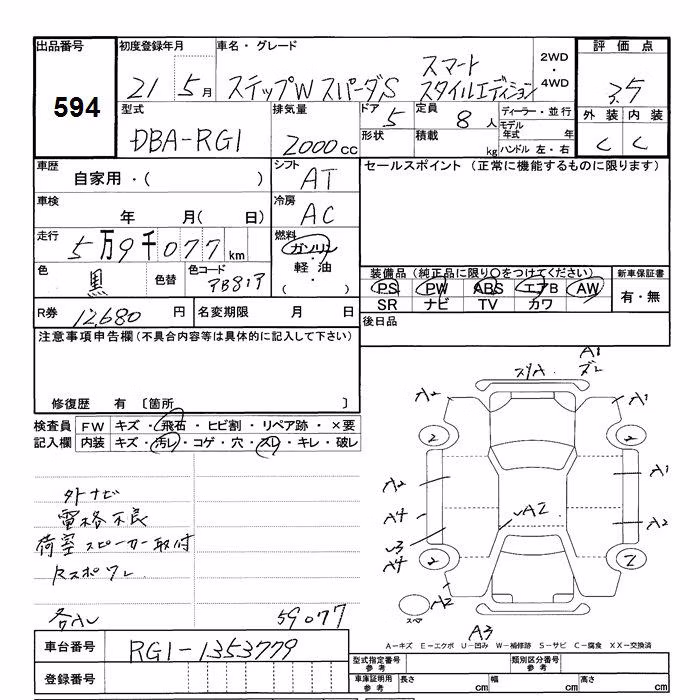 出品番号 初度登録年月 車名・グレード 2WD・4WD 評価点
594 21 5月 ステップW スパーダS スマートスタイルエディション 3.5
型式 DBA-RG1 排気量 2000cc ドア 5 定員 8人 ディーラー・並行 外装 内装
形状 積載 kg モデル年式 年 ハンドル 左・右 C C
車歴 自家用・( ) シフト AT セールスポイント (正常に機能するものに限ります)
車検 年 月( 日) 冷房 AC
走行 5万9千077km 燃料 ガソリン・軽油・( )
色 黒 色替 色コード
装備品 (純正品に限り○をつけてください) 新車保証書
PS PW ABS エアB AW 有・無
SR ナビ TV カワ
R券 12,680円 名変期限 月 日 後日品
注意事項申告欄(不具合内容等は具体的に記入して下さい)
修復歴 有 〔箇所 〕
検査員 FW キズ・飛石・ヒビ割・リペア跡・×要
記入欄 内装 キズ・汚レ・コゲ・穴・スレ・キレ・破レ
外ナビ
電格不良
荷室スピーカー取付
Rスポワレ
59077
A1
ズレ
スリA
A2 A1
2 2
A2 A1
A4 A2
UA2
U3
A4
2 2
A2
スペア
A3
A-キズ E-エクボ U-凹み W-補修跡 S-サビ C-腐食 XX-交換済
車台番号 RG1-1353779
登録番号
型式指定番号 参考 類別区分番号 参考
車庫証明用 参考 長さ cm 幅 cm 高さ cm